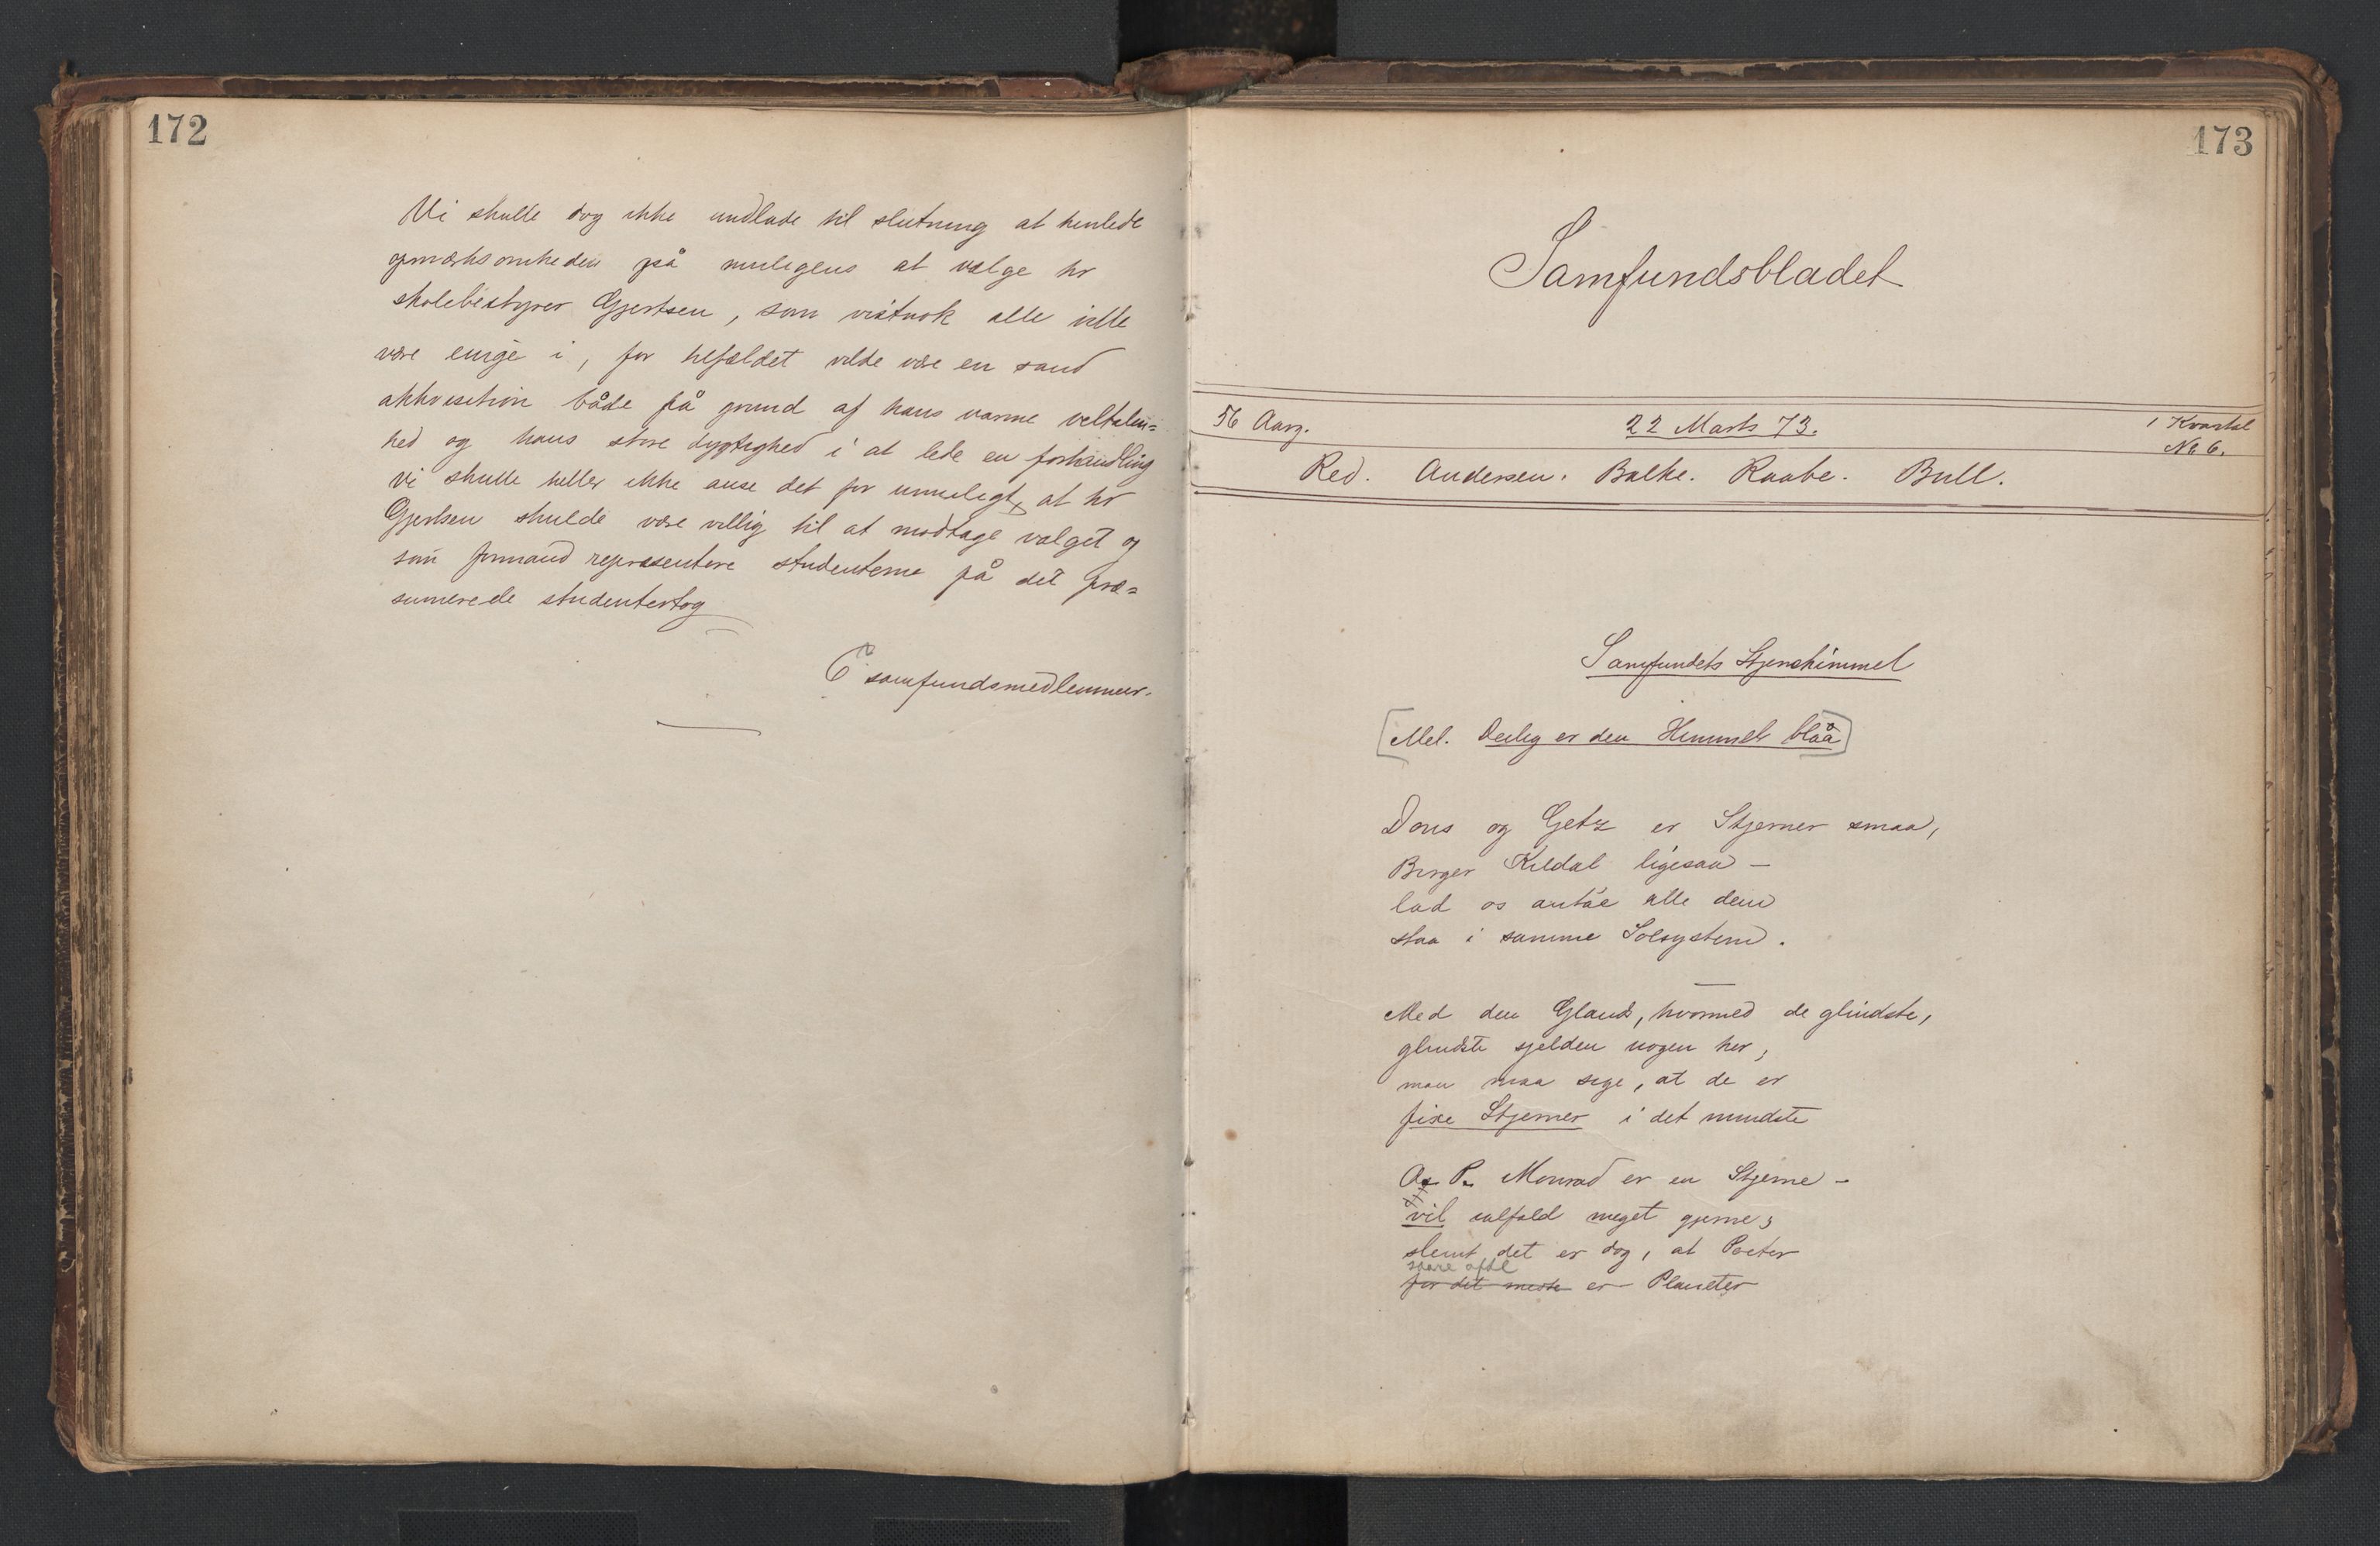 172
Vi skulle dog ikke undlade til slutning at henlede
opmærksomheden på muligens at vælge hr
skolebestyrer Gjertsen, som vistnok alle ville
være enige i, for tilfældet vilde være en sand
akkvisition både på grund af hans varme veltalen=
hed og hans store dygtighed i at lede en forhandling
vi skulle heller ikke anse det for umuligt, at hr
Gjertsen skulde være villig til at modtage valget og
som formand repræsentere studenterne på det præ=
sumerede studentertog
6 samfundsmedlemmer.
173
Samfundsbladet
56 Aarg. 22 Marts 73. 1 Kvartal
No 6.
Red. Andersen. Balke. Raabe. Bull.
Samfundets Stjernehimmel
[Mel. Deilig er den Himmel blaa]
Dons og Getz er Stjerner smaa,
Birger Kildal ligesaa –
lad os antae alle dem
staa i samme Solsystem.
Med den Glands, hvormed de glindste,
glindste sjelden nogen her,
man maa sige, at de er
fixe Stjerner i det mindste
A. P. Monrad er en Stjerne –
vil ialfald meget gjerne;
slemt det er dog, at Poeter
saare ofte
for det meste er Planeter